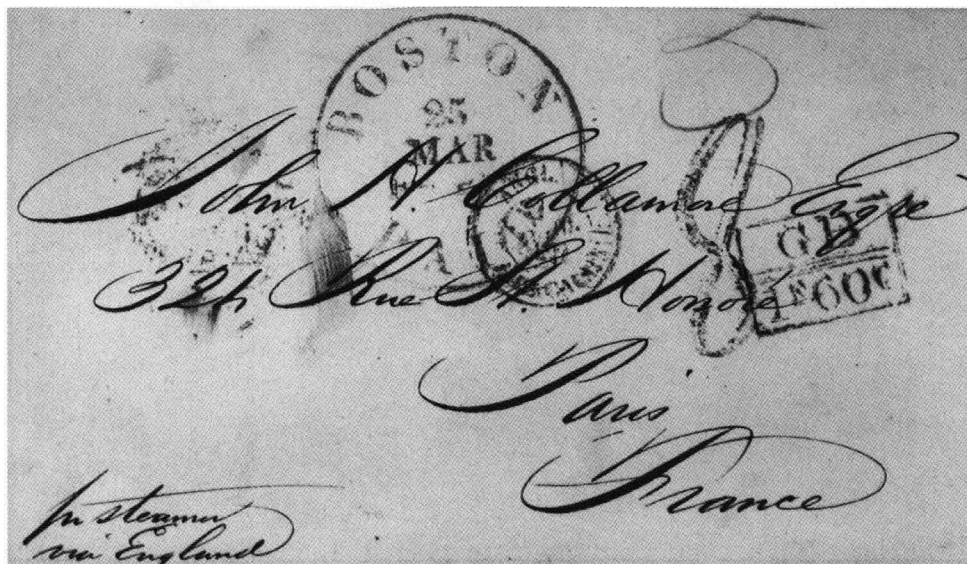 BOSTON
25
MAR
John H. Collamore Esqre
324 Rue St. Honoré
GB
1F60C
Paris
France
pr steamer
via England